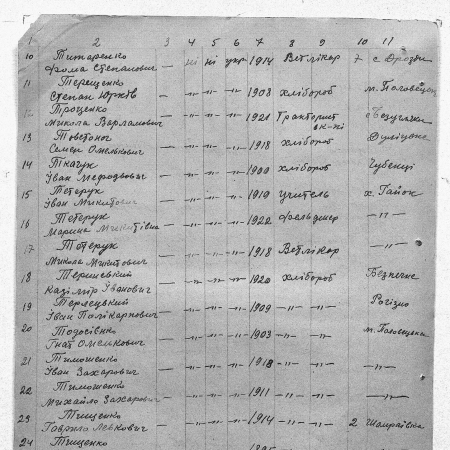 1 2 3 4 5 6 7 8 9 10 11
10 Титаренко
Фома Степанович — ні ні укр 1914 Ветлікар 7 с. Дрозди
11 Терещенко
Степан Юрків — -"- -"- -"- 1908 хлібороб м. Половецьк
12 Троценко
Микола Варламович — -"- -"- -"- 1921 Тракторист
13 Товстоног
Семен Омелькович — -"- -"- -"- 1918 хлібороб
14 Ткачук
Іван Мефодьович — -"- -"- -"- 1900 хлібороб Чубенці
15 Тетерук
Іван Микитович — -"- -"- -"- 1919 учитель х. Гайок
16 Тетерук
Марина Микитівна — -"- -"- -"- 1922 Фельдшер -"-
17 Тетерук
Микола Микитович — -"- -"- -"- 1918 Ветлікар -"-
18
Казімір Іванович — -"- -"- -"- 1920 хлібороб Безпечне
19 Терлецький
Іван Полікарпович — -"- -"- -"- 1909 -"- -"- Рогізно
20 Тодосієнко
Гнат Омелькович — -"- -"- -"- 1903 -"- -"-
21 Тимошенко
Іван Захарович — -"- -"- -"- 1918 -"- -"- -"-
22 Тимошенко
Михайло Захарович — -"- -"- -"- 1911 -"- -"- -"-
23 Тищенко
Гаврило Левкович — -"- -"- -"- 1914 -"- -"- 2 Шамраївка
24 Тищенко